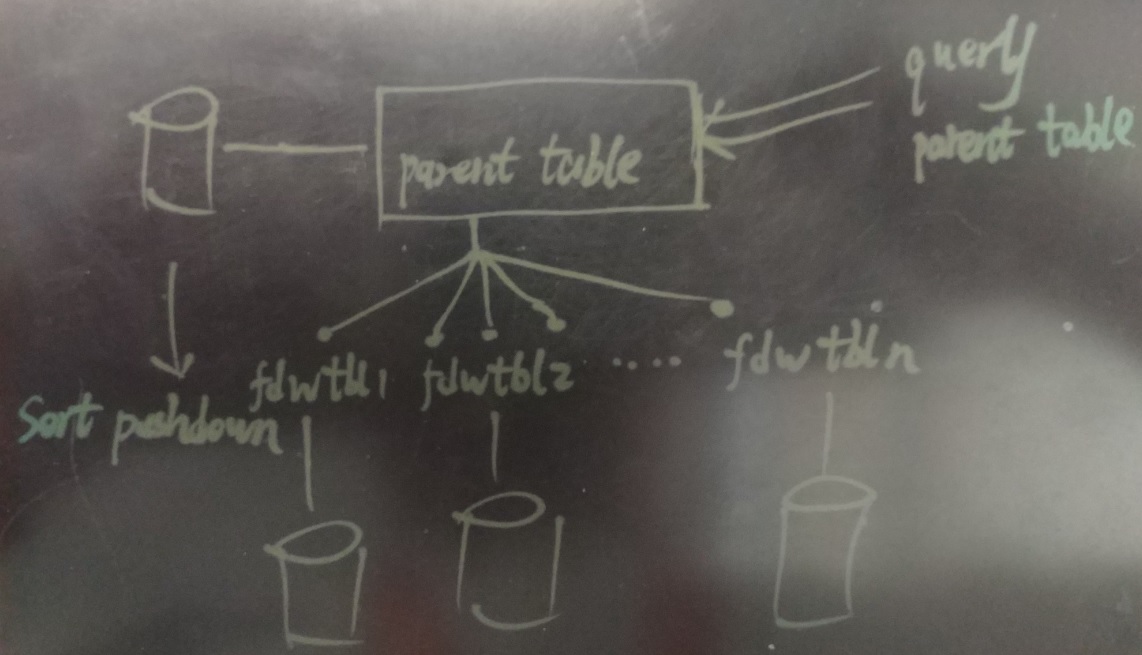 query
parent table
parent table
fdwtbl1 fdwtbl2 ..... fdwtbln
Sort pushdown